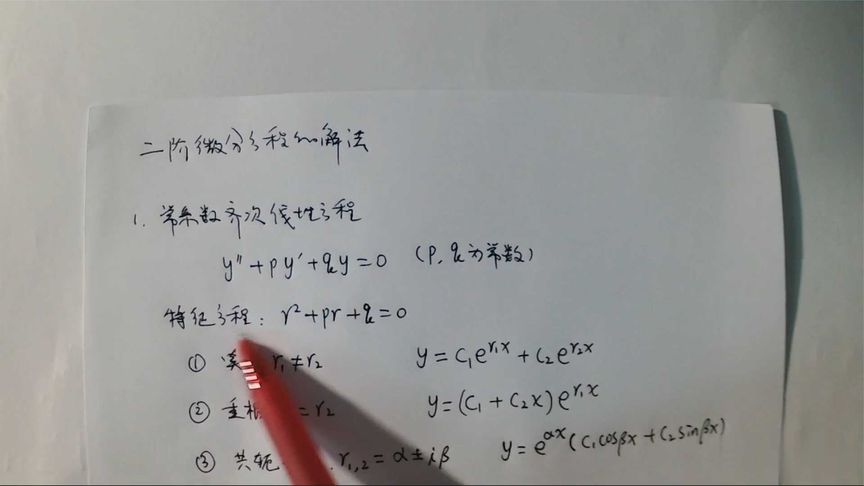 二阶微分方程的解法
1. 常系数齐次线性方程
y″+py′+qy=0 (p,q为常数)
特征方程: r²+pr+q=0
① 实 r₁≠r₂ y=C₁e^{r₁x}+C₂e^{r₂x}
② 重根 =r₂ y=(C₁+C₂x)e^{r₁x}
③ 共轭 r₁,₂=α±iβ y=e^{αx}(C₁cosβx+C₂sinβx)